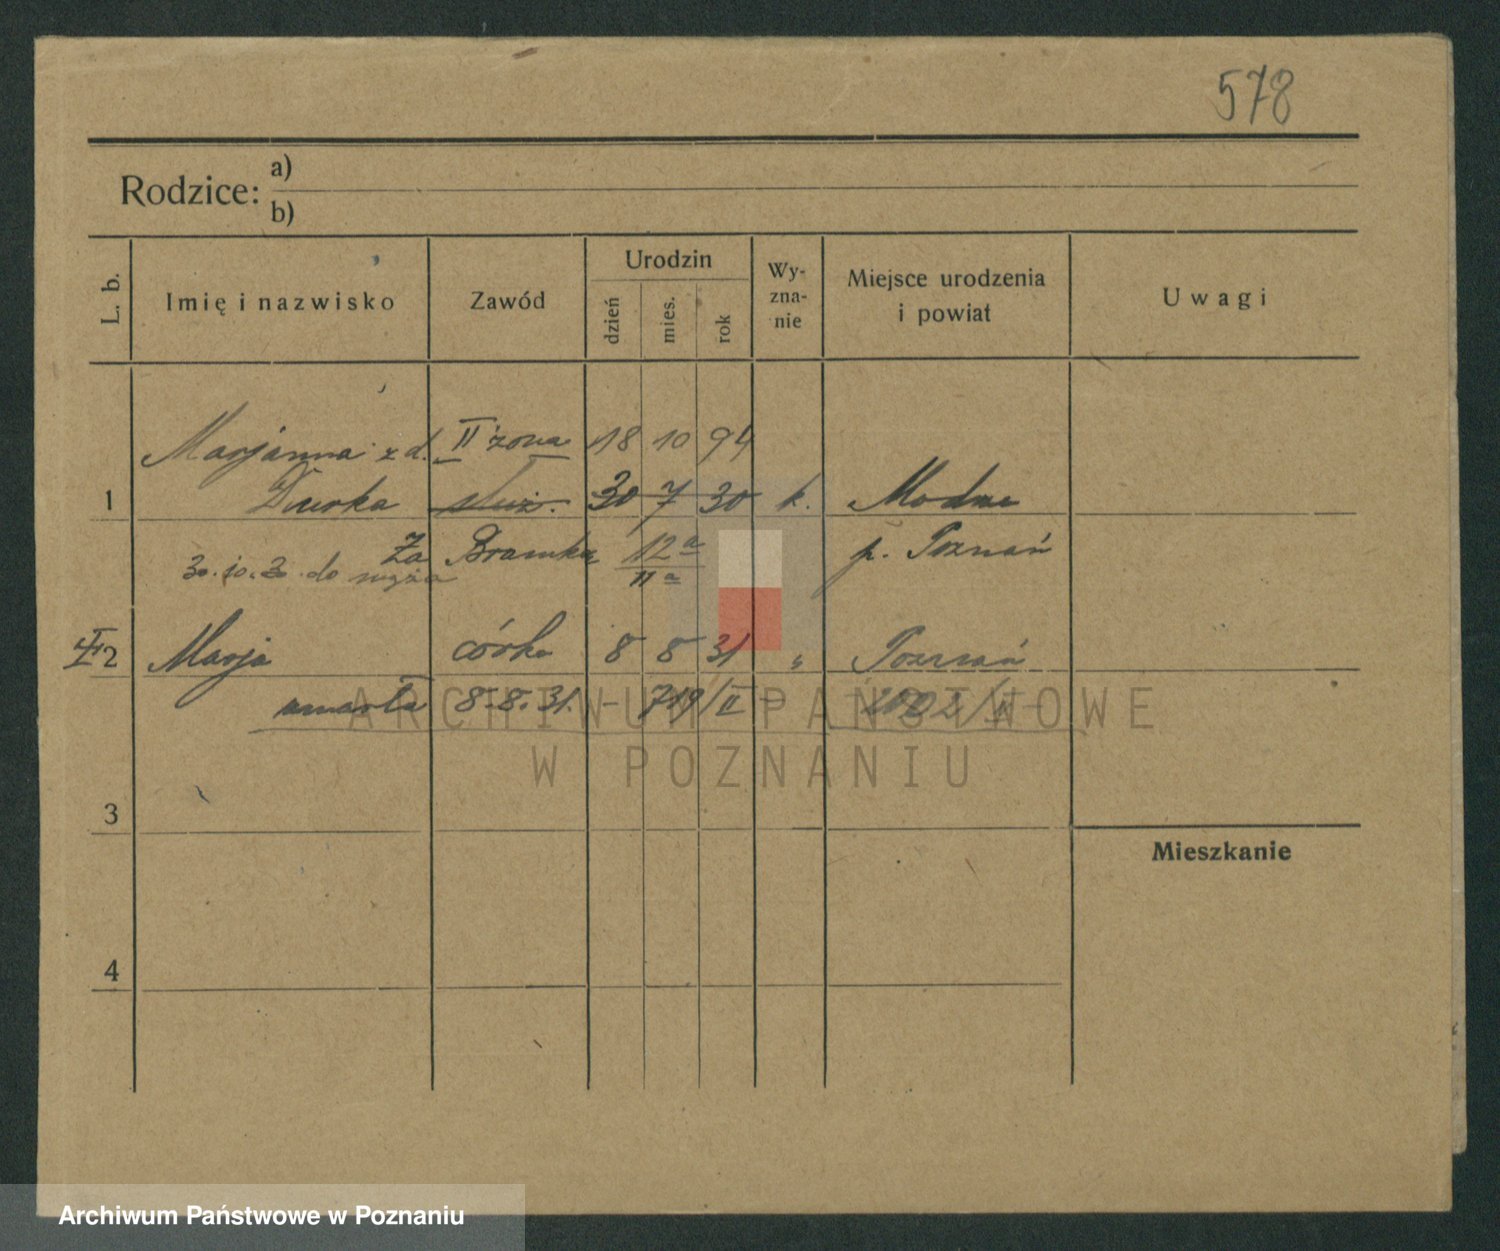 578
Rodzice: a)
b)
L. b. Imię i nazwisko Zawód Urodzin dzień mies. rok Wy-zna-nie Miejsce urodzenia i powiat Uwagi
Marjanna z d. II żona 18 10 94
1 Durka służ. 30 7 30 k. Modrze
Za Bramką 12a p. Poznań
30.10.30. do męża 11a
2 Marja córka 8 8 31 " Poznań
umarła 8.8.31. – 719/II –
3
Mieszkanie
4
ARCHIWUM PAŃSTWOWE
W POZNANIU
Archiwum Państwowe w Poznaniu